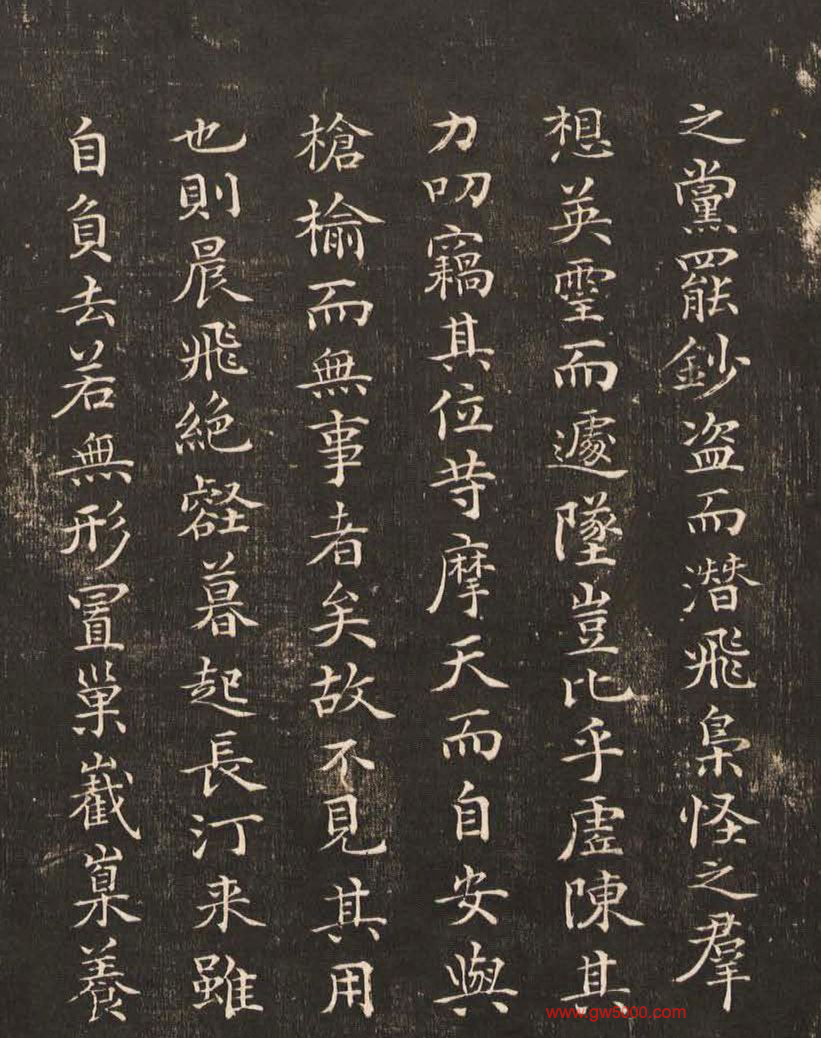 之黨罷鈔盜而潛飛梟怪之羣
想英霊而遽墜豈比乎虛陳其
力叨竊其位等摩天而自安與
槍榆而無事者矣故不見其用
也則晨飛絕壑暮起長汀来雖
自負去若無形置巢巀嶪養
www.gw5000.com